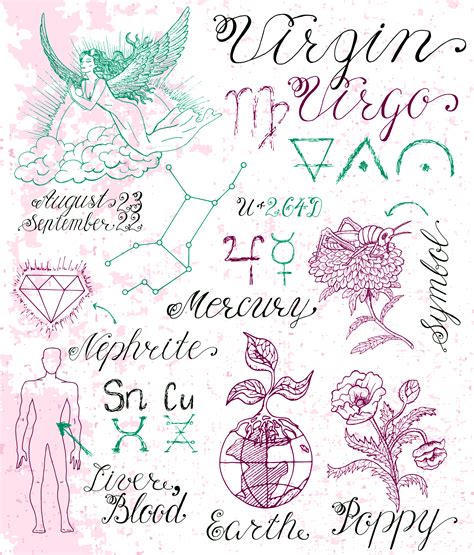 Virgin
Virgo
August 23
September 22
U+264D
Mercury
Symbol
Nephrite
Sn Cu
Liver,
Blood
Earth
Poppy